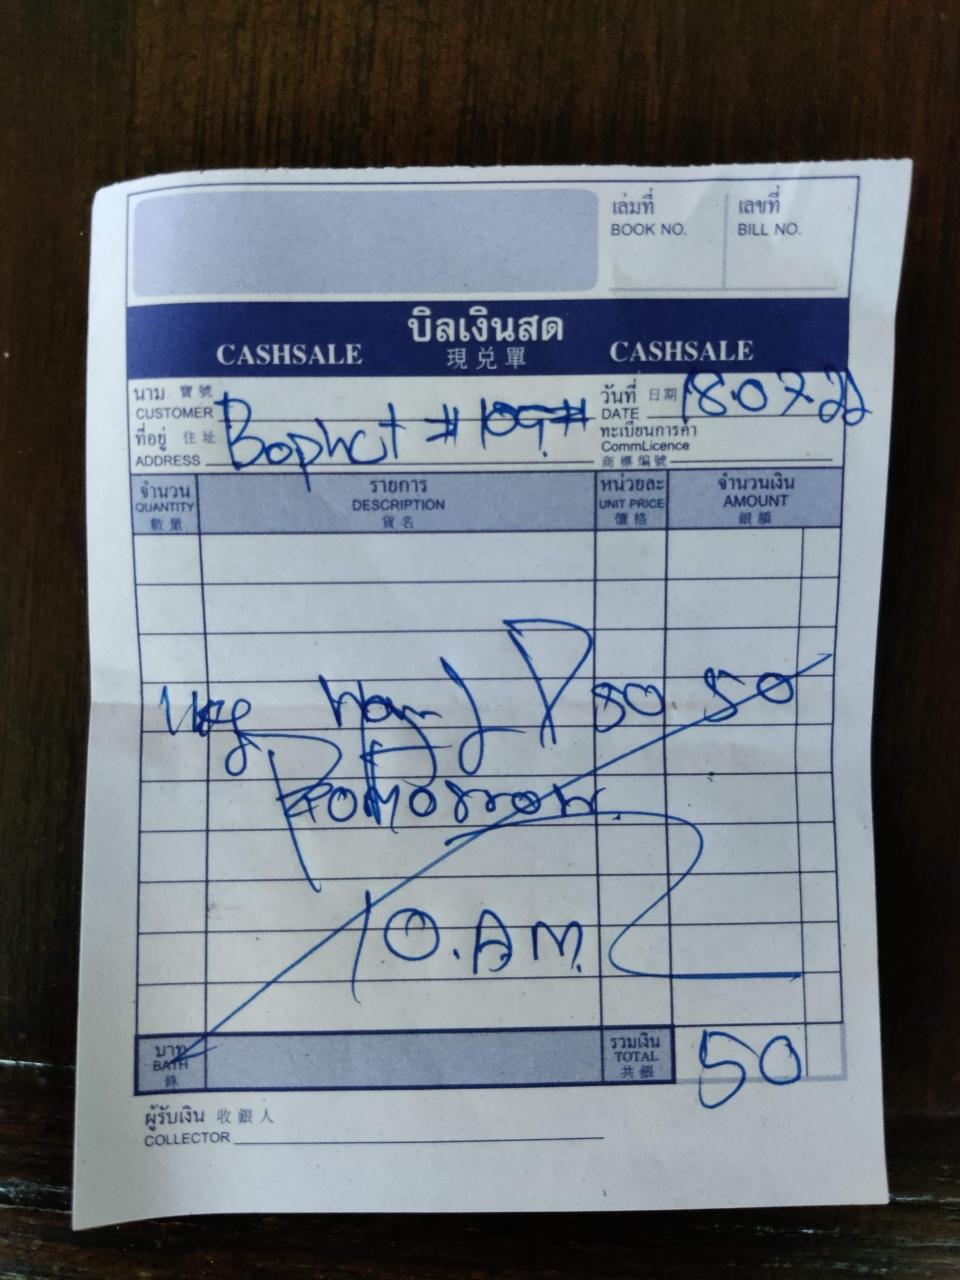 เล่มที่ เลขที่
BOOK NO. BILL NO.
บิลเงินสด
CASHSALE 現兑單 CASHSALE
นาม 寶號 วันที่ 日期 18.07.22
CUSTOMER DATE
ที่อยู่ 住址 Bophut #109# ทะเบียนการค้า
ADDRESS CommLicence
商標編號
จำนวน รายการ หน่วยละ จำนวนเงิน
QUANTITY DESCRIPTION UNIT PRICE AMOUNT
數量 貨名 價格 銀額
50 50
tomorrow
10.AM.
บาท รวมเงิน
BATH TOTAL 50
銖 共銀
ผู้รับเงิน 收銀人
COLLECTOR